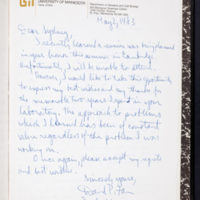 UNIVERSITY OF MINNESOTA
Department of Genetics and Cell Biology
May 2, 1983
Dear Sydney,
I recently learned a reunion was being planned
in your honor this summer in Cambridge.
Unfortunately, I will be unable to attend.
However, I would like to take this opportunity
to express my best wishes and my thanks for
the memorable two years I spent in your
laboratory. The approach to problems
which I learned has been of constant
value regardless of the problem I was
working on.
Once again, please accept my regrets
and best wishes.
Sincerely yours,